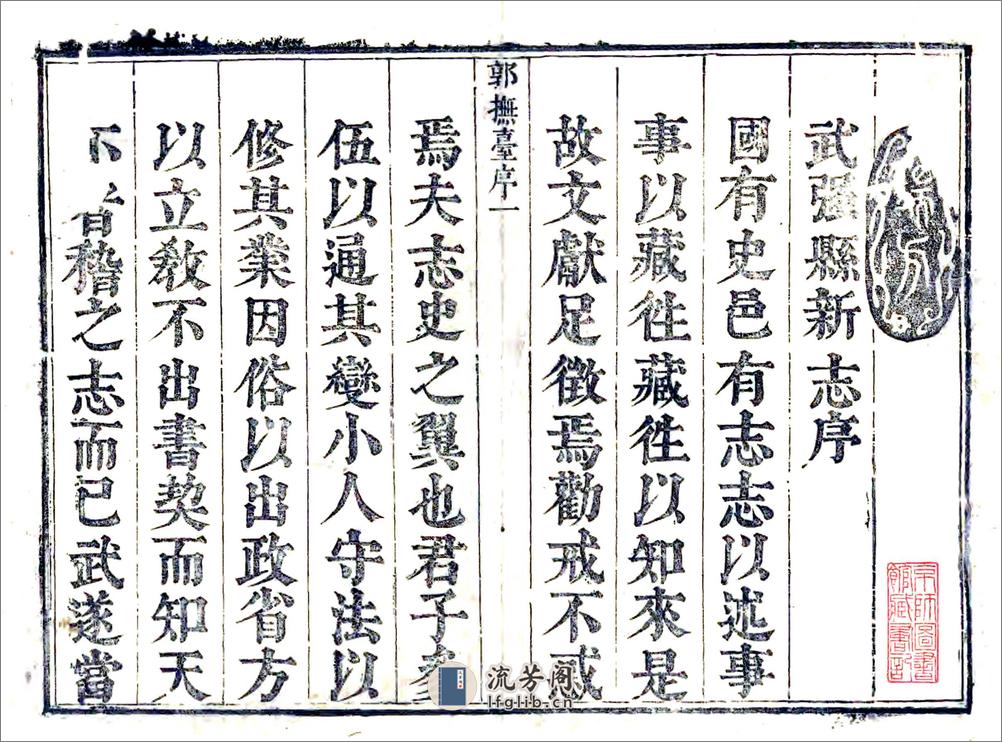 武强縣新志序
國有史邑有志志以述事
事以藏徃藏徃以知來是
故文獻足徵焉勸戒不忒
郭撫臺序 一
焉夫志史之翼也君子參
伍以通其變小人守法以
修其業因俗以出政省方
以立敎不出書契而知天
稽之志而已武遂當
京師圖書
館藏書記
流芳阁
lfglib.cn